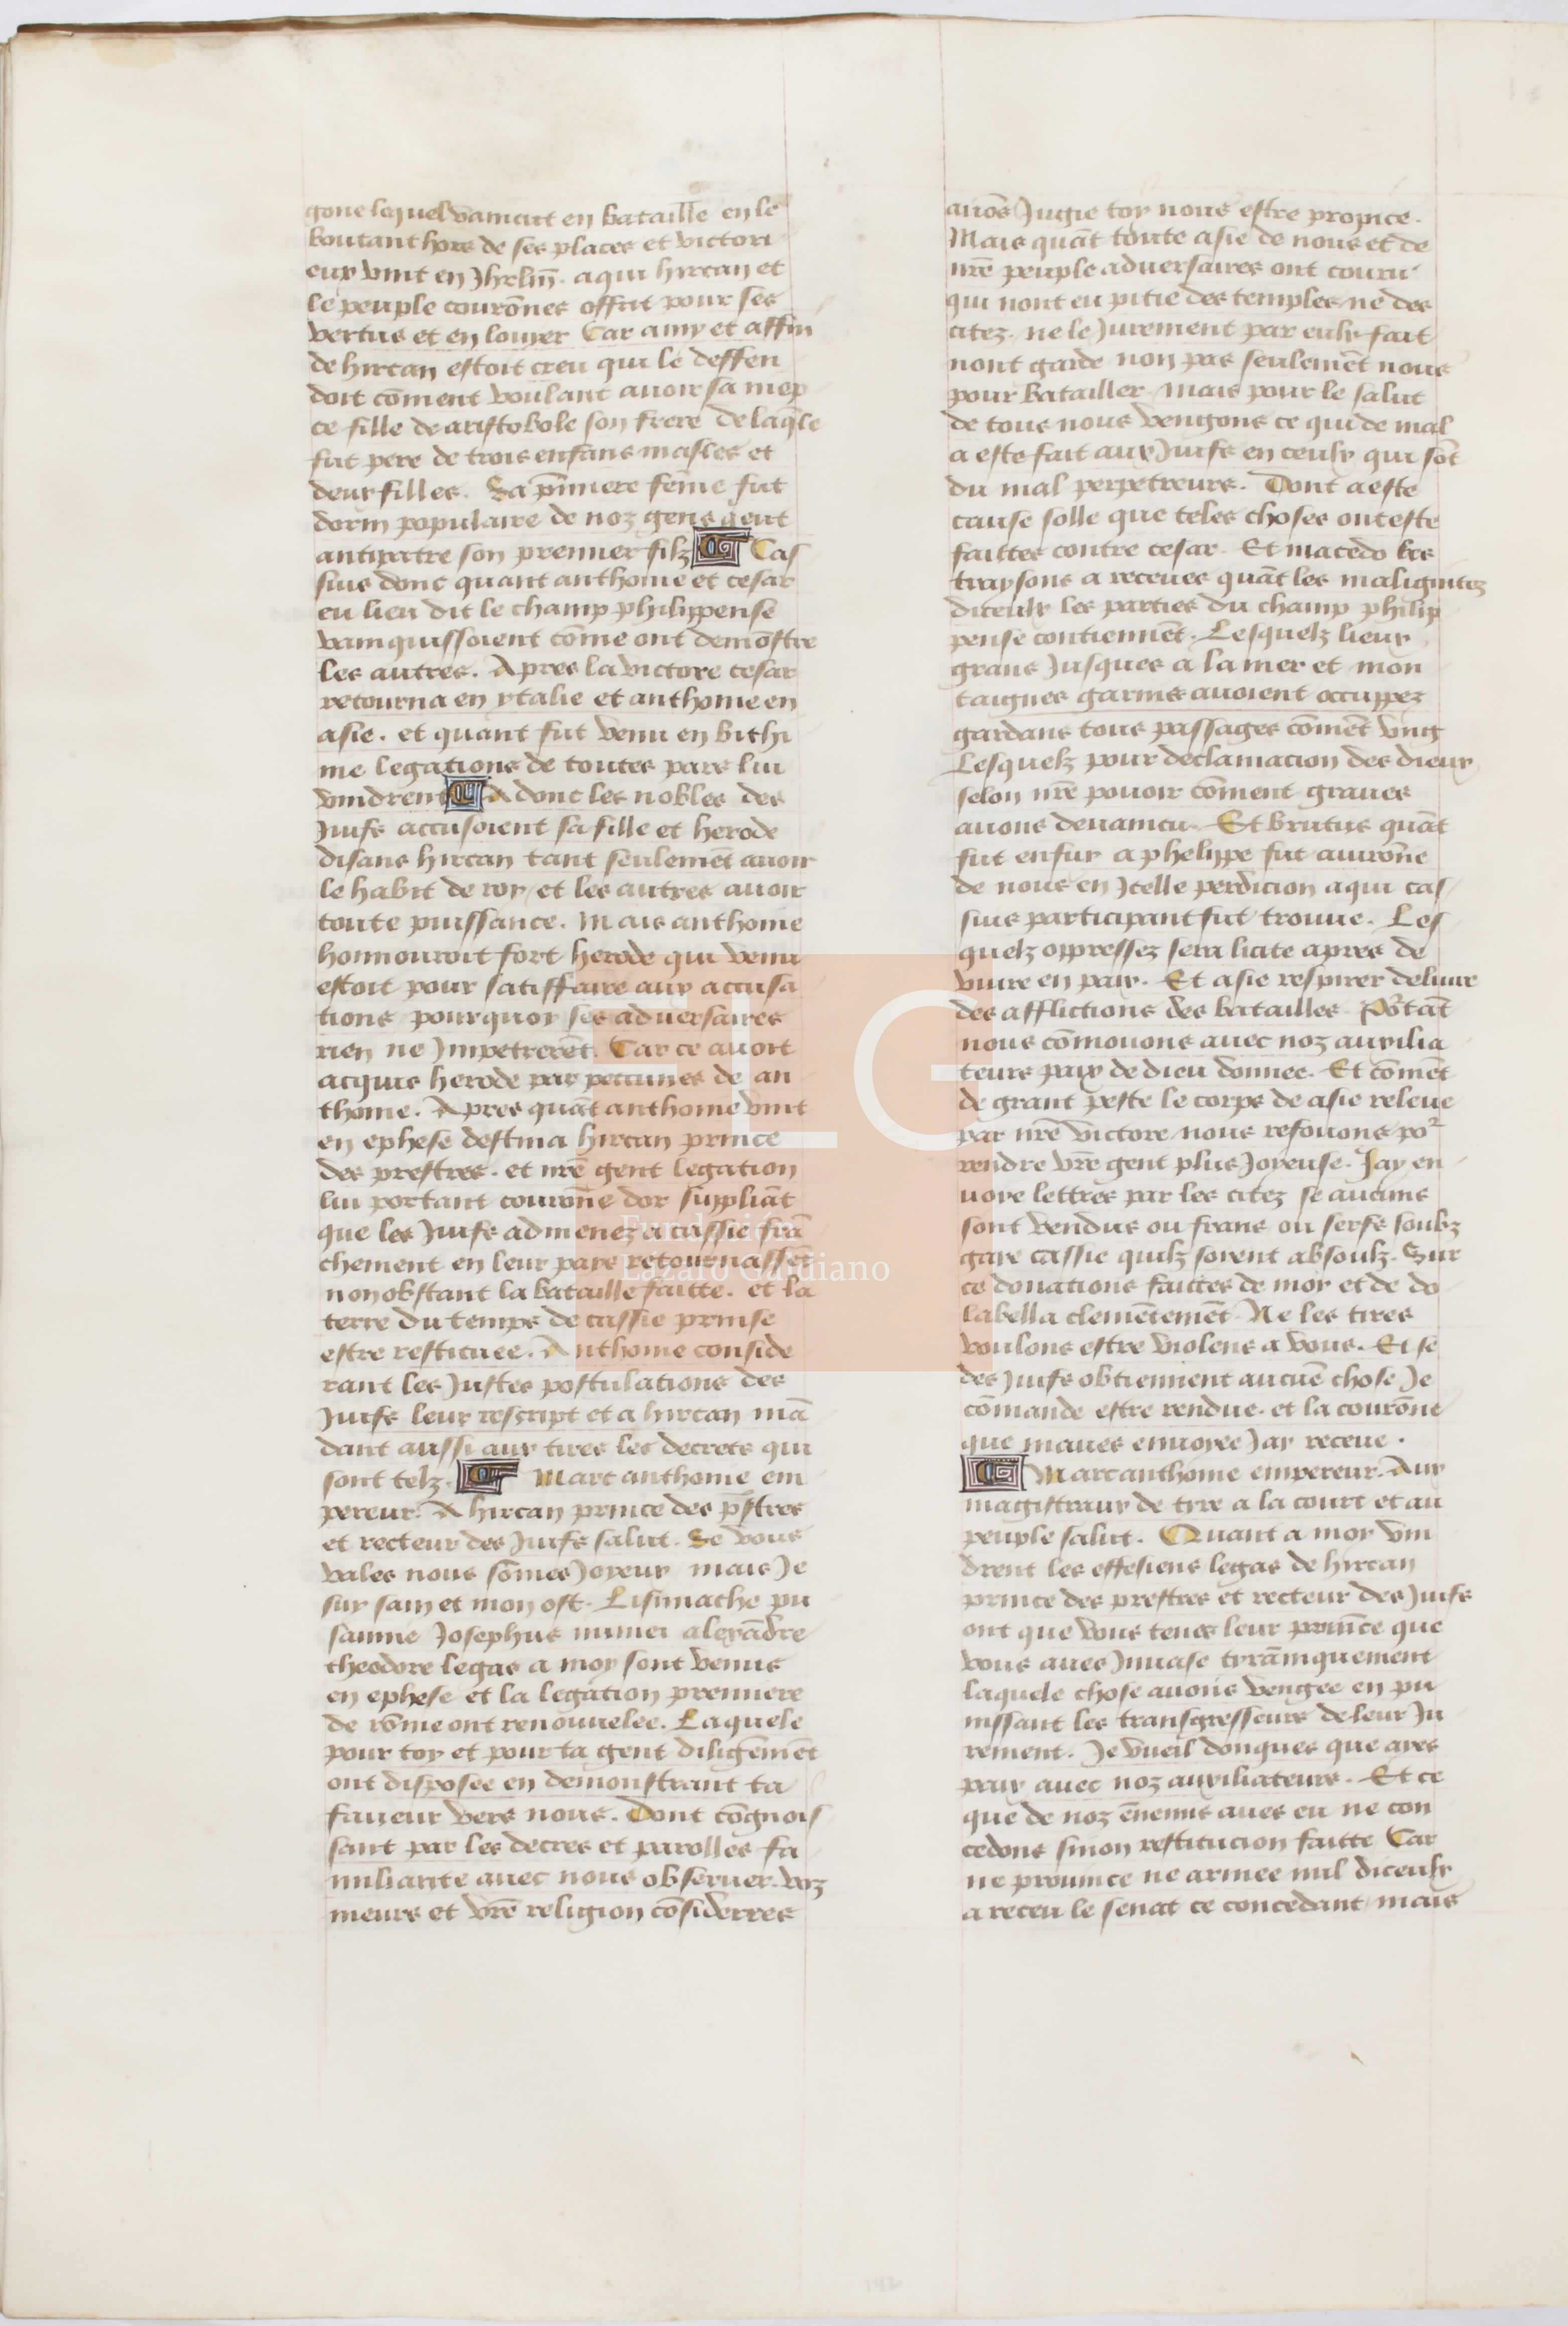 gone lequel vaincut en bataille en le
boutant hors de ses places et victori
eux vint en Jhrlm̄. a qui hircan et
le peuple courōnes offrit pour ses
vertus et en louyer Car amy et affin
de hircan estoit creu qui le deffen
doit cōment voulant avoir sa niep
ce fille de aristobole son frere de laq̄le
fut pere de trois enfans masles et
deux filles. Sa p̄miere fēme fut
dorin populaire de noz gens q̄ eut
antipatre son premier filz Cas
sius donc quant anthoine et cesar
eu lieu dit le champ philippense
vainquissoient cōme ont demōstre
les autres. Apres la victore cesar
retourna en ytalie et anthoine en
asie. et quant fut venu en bithi
nie legations de toutes pars lui
vindrent Adonc les nobles des
Juifs accusoient sa fille et herode
disans hircan tant seulemēt avoir
le habit de roy et les autres avoir
toute puissance. Mais anthoine
honnouroit fort herode qui venu
estoit pour satiffaire aux accusa
tions pourquoy ses adversaires
rien ne Jmpetrerēt. Car ce avoit
acquis herode par peccunes de an
thoine. Apres quāt anthoine vint
en ephese destina hircan prince
des prestres. et nrē gent legation
lui portant courōne dor supliāt
que les Juifs admenez a cassie frā
chement en leur pare retournassēt
nonobstant la bataille faitte. et la
terre du temps de cassie prinse
estre restituee. Anthoine conside
rant les Justes postulations des
Juifs leur rescript et a hircan mā
dant aussi aux tires les decrets qui
sont telz. Marc anthoine em
pereur. A hircan prince des p̄stres
et recteur des Juifs salut. Se vous
vales nous sōmes Joyeux mais Je
suy sain et mon ost. Lisimache pu
sanine Josephus minei alexādre
theodore legas a moy sont venus
en ephese et la legation premiere
de rōme ont renouvelee. Laquele
pour toy et pour ta gent diligēmēt
ont disposee en demonstrant ta
faveur vers nous. Dont cōgnois
sant par les decres et parolles fa
miliarite avec nous observer. voz
meurs et vrē religion cōsiderres
avōs Jugie toy nous estre propice.
Mais quāt toute asie de nous et de
nrē peuple adversaires ont couru
qui nont eu pitie des temples ne des
citez. ne le Jurement par eulx fait
nont garde non pas seulemēt nous
pour batailler mais pour le salut
de tous nous vengons ce qui de mal
a este fait aux Juifs en ceulx qui sōt
du mal perpetreurs. Dont a este
cause solle que teles choses ont este
faittes contre cesar. Et macedo les
traysons a receues quāt les malignitez
diceulx les parties du champ philip
pense contiennēt. Lesquelz lieux
grans Jusques a la mer et mon
taignes garnis avoient occuppez
gardans tous passages cōmēt ung
Lesquelz pour declamacion des dieux
selon nrē povoir cōment graves
avons devaincu. Et brutus quāt
fut enfuy a phelippe fut avirōne
de nous en Jcelle perdicion a qui cas
sius participant fut trouve. Les
quelz oppressez sera licite apres de
vivre en paix. Et asie respirer delivre
des afflictions des batailles. Po'tāt
nous cōmouons avec noz auxilia
teurs paix de dieu donnee. Et cōmēt
de grant peste le corps de asie releve
par nrē victore nous resouons po'
rendre vrē gent plus Joyeuse. Jay en
voye lettres par les citez se aucuns
sont vendus ou frans ou serfs soubz
gare cassie quilz soyent absoulz. Sur
ce donations faittes de moy et de do
labella clemētemēt. Ne les tires
voulons estre violens a vous. Et se
des Juifs obtiennent aucuē chose Je
cōmande estre rendue. et la courōne
que maves envoyee Jay receue.
Marc anthoine empereur. Aux
magistraux de tyre a la court et au
peuple salut. Quant a moy vin
drent les effesiens legas de hircan
prince des prestres et recteur des Juifs
ont que vous tenes leur provīce que
vous aves Jnvase tyrāniquement
laquele chose avons vengee en pu
nissant les transgresseurs de leur Ju
rement. Je vueil donques que ayes
paix avec noz auxiliateurs. Et ce
que de noz ēnemis aves eu ne con
cedons sinon restitucion faitte Car
ne province ne armee nul diceulx
a receu le senat ce concedant mais
LG
Fundación
Lázaro Galdiano